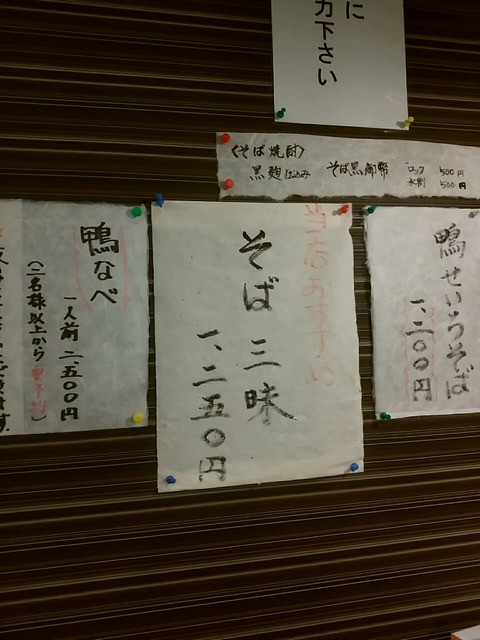 に
力下さい
〈そば焼酎〉
黒麹仕込み そば黒御幣 ロック 500円
水割 500円
鴨せいろそば
一、二〇〇円
当店おすすめ
そば三昧
一、二五〇円
鴨なべ
一人前 二、五〇〇円
(二名様以上から 要予約)